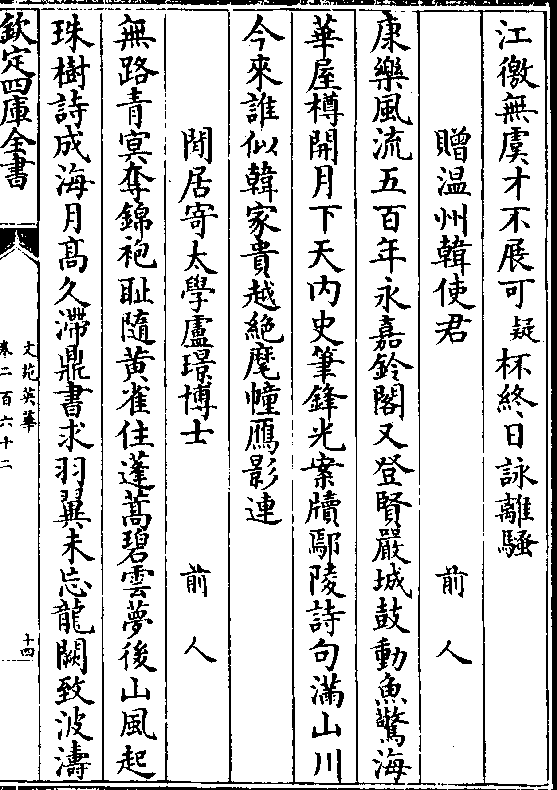 江徼無虞才不展可疑杯終日詠離騷
贈温州韓使君 前人
康樂風流五百年永嘉鈴閣又登賢嚴城鼓動魚驚海
華屋樽開月下天内史筆鋒光案牘鄢陵詩句滿山川
今來誰似韓家貴越絶麾幢鴈影連
閒居寄太學盧璟博士 前人
無路青冥奪錦袍耻隨黄雀住蓬蒿碧雲夢後山風起
珠樹詩成海月髙久滯鼎書求羽翼未忘龍闕致波濤
欽定四庫全書
文苑英華
卷二百六十二
十四